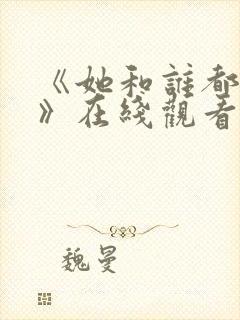 《她和誰都
》在綫觀看
魏曼